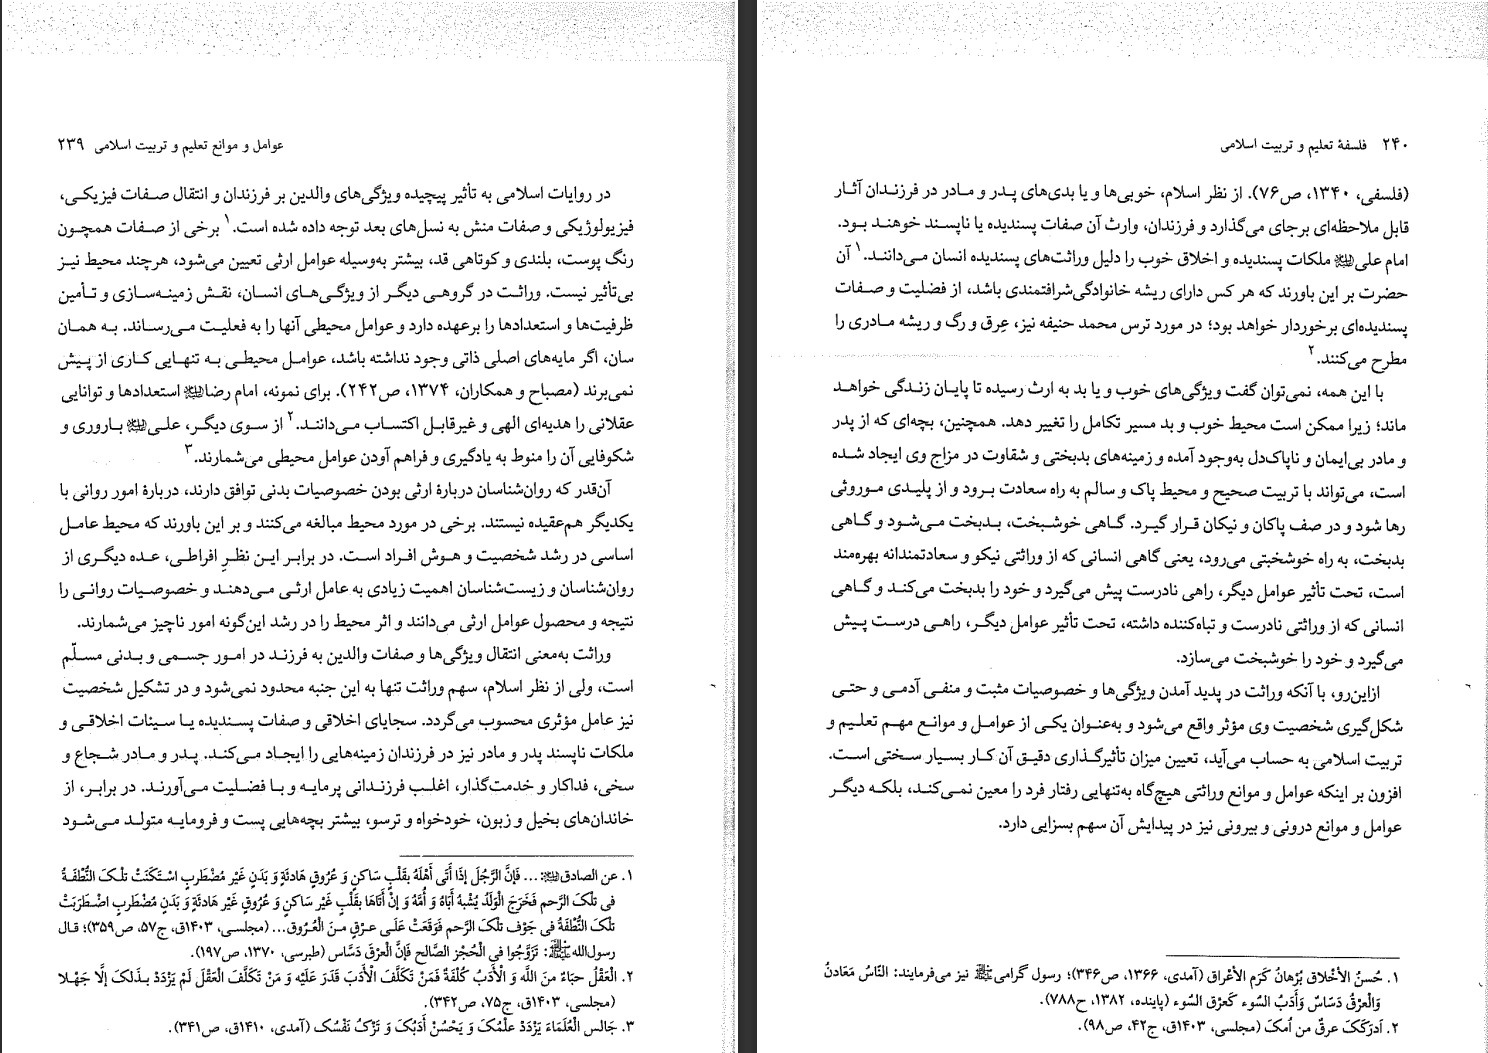 عوامل و موانع تعلیم و تربیت اسلامی ۲۳۹
در روایات اسلامی به تأثیر پیچیده ویژگی‌های والدین بر فرزندان و انتقال صفات فیزیکی،
فیزیولوژیکی و صفات منش به نسل‌های بعد توجه داده شده است.۱ برخی از صفات همچون
رنگ پوست، بلندی و کوتاهی قد، بیشتر به‌وسیله عوامل ارثی تعیین می‌شود، هرچند محیط نیز
بی‌تأثیر نیست. وراثت در گروهی دیگر از ویژگی‌های انسان، نقش زمینه‌سازی و تأمین
ظرفیت‌ها و استعدادها را برعهده دارد و عوامل محیطی آنها را به فعلیت می‌رساند. به همان
سان، اگر مایه‌های اصلی ذاتی وجود نداشته باشد، عوامل محیطی به تنهایی کاری از پیش
نمی‌برند (مصباح و همکاران، ۱۳۷۴، ص۲۴۲). برای نمونه، امام رضا استعدادها و توانایی
عقلانی را هدیه‌ای الهی و غیرقابل اکتساب می‌دانند.۲ از سوی دیگر، علی باروری و
شکوفایی آن را منوط به یادگیری و فراهم آوردن عوامل محیطی می‌شمارند.۳
آن‌قدر که روان‌شناسان دربارهٔ ارثی بودن خصوصیات بدنی توافق دارند، دربارهٔ امور روانی با
یکدیگر هم‌عقیده نیستند. برخی در مورد محیط مبالغه می‌کنند و بر این باورند که محیط عامل
اساسی در رشد شخصیت و هوش افراد است. در برابر این نظرِ افراطی، عده دیگری از
روان‌شناسان و زیست‌شناسان اهمیت زیادی به عامل ارثی می‌دهند و خصوصیات روانی را
نتیجه و محصول عوامل ارثی می‌دانند و اثر محیط را در رشد این‌گونه امور ناچیز می‌شمارند.
وراثت به‌معنی انتقال ویژگی‌ها و صفات والدین به فرزند در امور جسمی و بدنی مسلّم
است، ولی از نظر اسلام، سهم وراثت تنها به این جنبه محدود نمی‌شود و در تشکیل شخصیت
نیز عامل مؤثری محسوب می‌گردد. سجایای اخلاقی و صفات پسندیده یا سیئات اخلاقی و
ملکات ناپسند پدر و مادر نیز در فرزندان زمینه‌هایی را ایجاد می‌کند. پدر و مادر شجاع و
سخی، فداکار و خدمت‌گذار، اغلب فرزندانی پرمایه و با فضلیت می‌آورند. در برابر، از
خاندان‌های بخیل و زبون، خودخواه و ترسو، بیشتر بچه‌هایی پست و فرومایه متولد می‌شود
۱. عن الصادق: ... فَإنَّ الرَّجُلَ إذَا أتَی أهْلَهُ بقَلْبٍ سَاکنٍ وَ عُرُوقٍ هَادئَةٍ وَ بَدَنٍ غَیْر مُضْطَربٍ اسْتَکَنَتْ تلْکَ النُّطْفَةُ
فی تلْکَ الرَّحم فَخَرَجَ الْوَلَدُ یُشْبهُ أبَاهُ وَ أُمَّهُ وَ إنْ أتَاهَا بقَلْبٍ غَیْر سَاکنٍ وَ عُرُوقٍ غَیْر هَادئَةٍ وَ بَدَنٍ مُضْطَربٍ اضْطَرَبَتْ
تلْکَ النُّطْفَةُ فی جَوْف تلْکَ الرَّحم فَوَقَعَتْ عَلَی عرْقٍ منَ الْعُرُوق... (مجلسی، ۱۴۰۳ق، ج۵۷، ص۳۵۹)؛ قال
رسول‌الله: تَزَوَّجُوا فی الْحُجْز الصَّالح فَإنَّ الْعرْقَ دَسَّاس (طبرسی، ۱۳۷۰، ص۱۹۷).
۲. الْعَقْلُ حبَاءٌ منَ اللَّه وَ الْأدَبُ کُلْفَةٌ فَمَنْ تَکَلَّفَ الْأدَبَ قَدَرَ عَلَیْه وَ مَنْ تَکَلَّفَ الْعَقْلَ لَمْ یَزْدَدْ بذَلکَ إلَّا جَهْلا
(مجلسی، ۱۴۰۳ق، ج۷۵، ص۳۴۲).
۳. جَالس الْعُلَمَاءَ یَزْدَدْ علْمُکَ وَ یَحْسُنْ أدَبُکَ وَ تَزْکُ نَفْسُک (آمدی، ۱۴۱۰ق، ص۳۴۱).
۲۴۰ فلسفهٔ تعلیم و تربیت اسلامی
(فلسفی، ۱۳۴۰، ص۷۶). از نظر اسلام، خوبی‌ها و یا بدی‌های پدر و مادر در فرزندان آثار
قابل ملاحظه‌ای برجای می‌گذارد و فرزندان، وارث آن صفات پسندیده یا ناپسند خوهند بود.
امام علی ملکات پسندیده و اخلاق خوب را دلیل وراثت‌های پسندیده انسان می‌دانند.۱ آن
حضرت بر این باورند که هر کس دارای ریشه خانوادگی‌شرافتمندی باشد، از فضلیت و صفات
پسندیده‌ای برخوردار خواهد بود؛ در مورد ترس محمد حنیفه نیز، عِرق و رگ و ریشه مادری را
مطرح می‌کنند.۲
با این همه، نمی‌توان گفت ویژگی‌های خوب و یا بد به ارث رسیده تا پایان زندگی خواهد
ماند؛ زیرا ممکن است محیط خوب و بد مسیر تکامل را تغییر دهد. همچنین، بچه‌ای که از پدر
و مادر بی‌ایمان و ناپاک‌دل به‌وجود آمده و زمینه‌های بدبختی و شقاوت در مزاج وی ایجاد شده
است، می‌تواند با تربیت صحیح و محیط پاک و سالم به راه سعادت برود و از پلیدی موروثی
رها شود و در صف پاکان و نیکان قرار گیرد. گاهی خوشبخت، بدبخت می‌شود و گاهی
بدبخت، به راه خوشبختی می‌رود، یعنی گاهی انسانی که از وراثتی نیکو و سعادتمندانه بهره‌مند
است، تحت تأثیر عوامل دیگر، راهی نادرست پیش می‌گیرد و خود را بدبخت می‌کند و گاهی
انسانی که از وراثتی نادرست و تباه‌کننده داشته، تحت تأثیر عوامل دیگر، راهی درست پیش
می‌گیرد و خود را خوشبخت می‌سازد.
ازاین‌رو، با آنکه وراثت در پدید آمدن ویژگی‌ها و خصوصیات مثبت و منفی آدمی و حتی
شکل‌گیری شخصیت وی مؤثر واقع می‌شود و به‌عنوان یکی از عوامل و موانع مهم تعلیم و
تربیت اسلامی به حساب می‌آید، تعیین میزان تأثیرگذاری دقیق آن کار بسیار سختی است.
افزون بر اینکه عوامل و موانع وراثتی هیچ‌گاه به‌تنهایی رفتار فرد را معین نمی‌کند، بلکه دیگر
عوامل و موانع درونی و بیرونی نیز در پیدایش آن سهم بسزایی دارد.
۱. حُسنُ الأخْلاق بُرْهانُ کَرَم الأعْراق (آمدی، ۱۳۶۶، ص۳۴۶)؛ رسول گرامی نیز می‌فرمایند: النّاسُ مَعَادنُ
وَالْعرْقُ دَسّاسٌ وَأدَبُ السُّوء کَعرْق السُّوء (پاینده، ۱۳۸۲، ح۷۸۸).
۲. اَدرَکَکَ عرقٌ من اُمکَ (مجلسی، ۱۴۰۳ق، ج۴۲، ص۹۸).